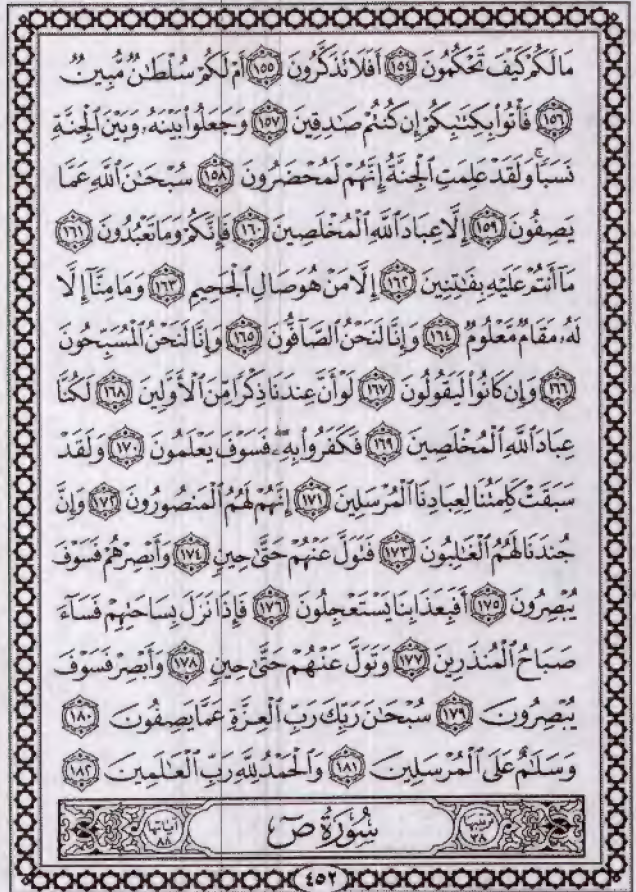 مَا لَكُمْ كَيْفَ تَحْكُمُونَ ١٥٤ أَفَلَا تَذَكَّرُونَ ١٥٥ أَمْ لَكُمْ سُلْطَٰنٌ مُّبِينٌ
١٥٦ فَأْتُوا۟ بِكِتَٰبِكُمْ إِن كُنتُمْ صَٰدِقِينَ ١٥٧ وَجَعَلُوا۟ بَيْنَهُۥ وَبَيْنَ ٱلْجِنَّةِ
نَسَبًا ۚ وَلَقَدْ عَلِمَتِ ٱلْجِنَّةُ إِنَّهُمْ لَمُحْضَرُونَ ١٥٨ سُبْحَٰنَ ٱللَّهِ عَمَّا
يَصِفُونَ ١٥٩ إِلَّا عِبَادَ ٱللَّهِ ٱلْمُخْلَصِينَ ١٦٠ فَإِنَّكُمْ وَمَا تَعْبُدُونَ ١٦١
مَآ أَنتُمْ عَلَيْهِ بِفَٰتِنِينَ ١٦٢ إِلَّا مَنْ هُوَ صَالِ ٱلْجَحِيمِ ١٦٣ وَمَا مِنَّآ إِلَّا
لَهُۥ مَقَامٌ مَّعْلُومٌ ١٦٤ وَإِنَّا لَنَحْنُ ٱلصَّآفُّونَ ١٦٥ وَإِنَّا لَنَحْنُ ٱلْمُسَبِّحُونَ
١٦٦ وَإِن كَانُوا۟ لَيَقُولُونَ ١٦٧ لَوْ أَنَّ عِندَنَا ذِكْرًا مِّنَ ٱلْأَوَّلِينَ ١٦٨ لَكُنَّا
عِبَادَ ٱللَّهِ ٱلْمُخْلَصِينَ ١٦٩ فَكَفَرُوا۟ بِهِۦ ۖ فَسَوْفَ يَعْلَمُونَ ١٧٠ وَلَقَدْ
سَبَقَتْ كَلِمَتُنَا لِعِبَادِنَا ٱلْمُرْسَلِينَ ١٧١ إِنَّهُمْ لَهُمُ ٱلْمَنصُورُونَ ١٧٢ وَإِنَّ
جُندَنَا لَهُمُ ٱلْغَٰلِبُونَ ١٧٣ فَتَوَلَّ عَنْهُمْ حَتَّىٰ حِينٍ ١٧٤ وَأَبْصِرْهُمْ فَسَوْفَ
يُبْصِرُونَ ١٧٥ أَفَبِعَذَابِنَا يَسْتَعْجِلُونَ ١٧٦ فَإِذَا نَزَلَ بِسَاحَتِهِمْ فَسَآءَ
صَبَاحُ ٱلْمُنذَرِينَ ١٧٧ وَتَوَلَّ عَنْهُمْ حَتَّىٰ حِينٍ ١٧٨ وَأَبْصِرْ فَسَوْفَ
يُبْصِرُونَ ١٧٩ سُبْحَٰنَ رَبِّكَ رَبِّ ٱلْعِزَّةِ عَمَّا يَصِفُونَ ١٨٠
وَسَلَٰمٌ عَلَى ٱلْمُرْسَلِينَ ١٨١ وَٱلْحَمْدُ لِلَّهِ رَبِّ ٱلْعَٰلَمِينَ ١٨٢
ترتيبها ٣٨ سُورَةُ صٓ آياتها ٨٨
٤٥٢